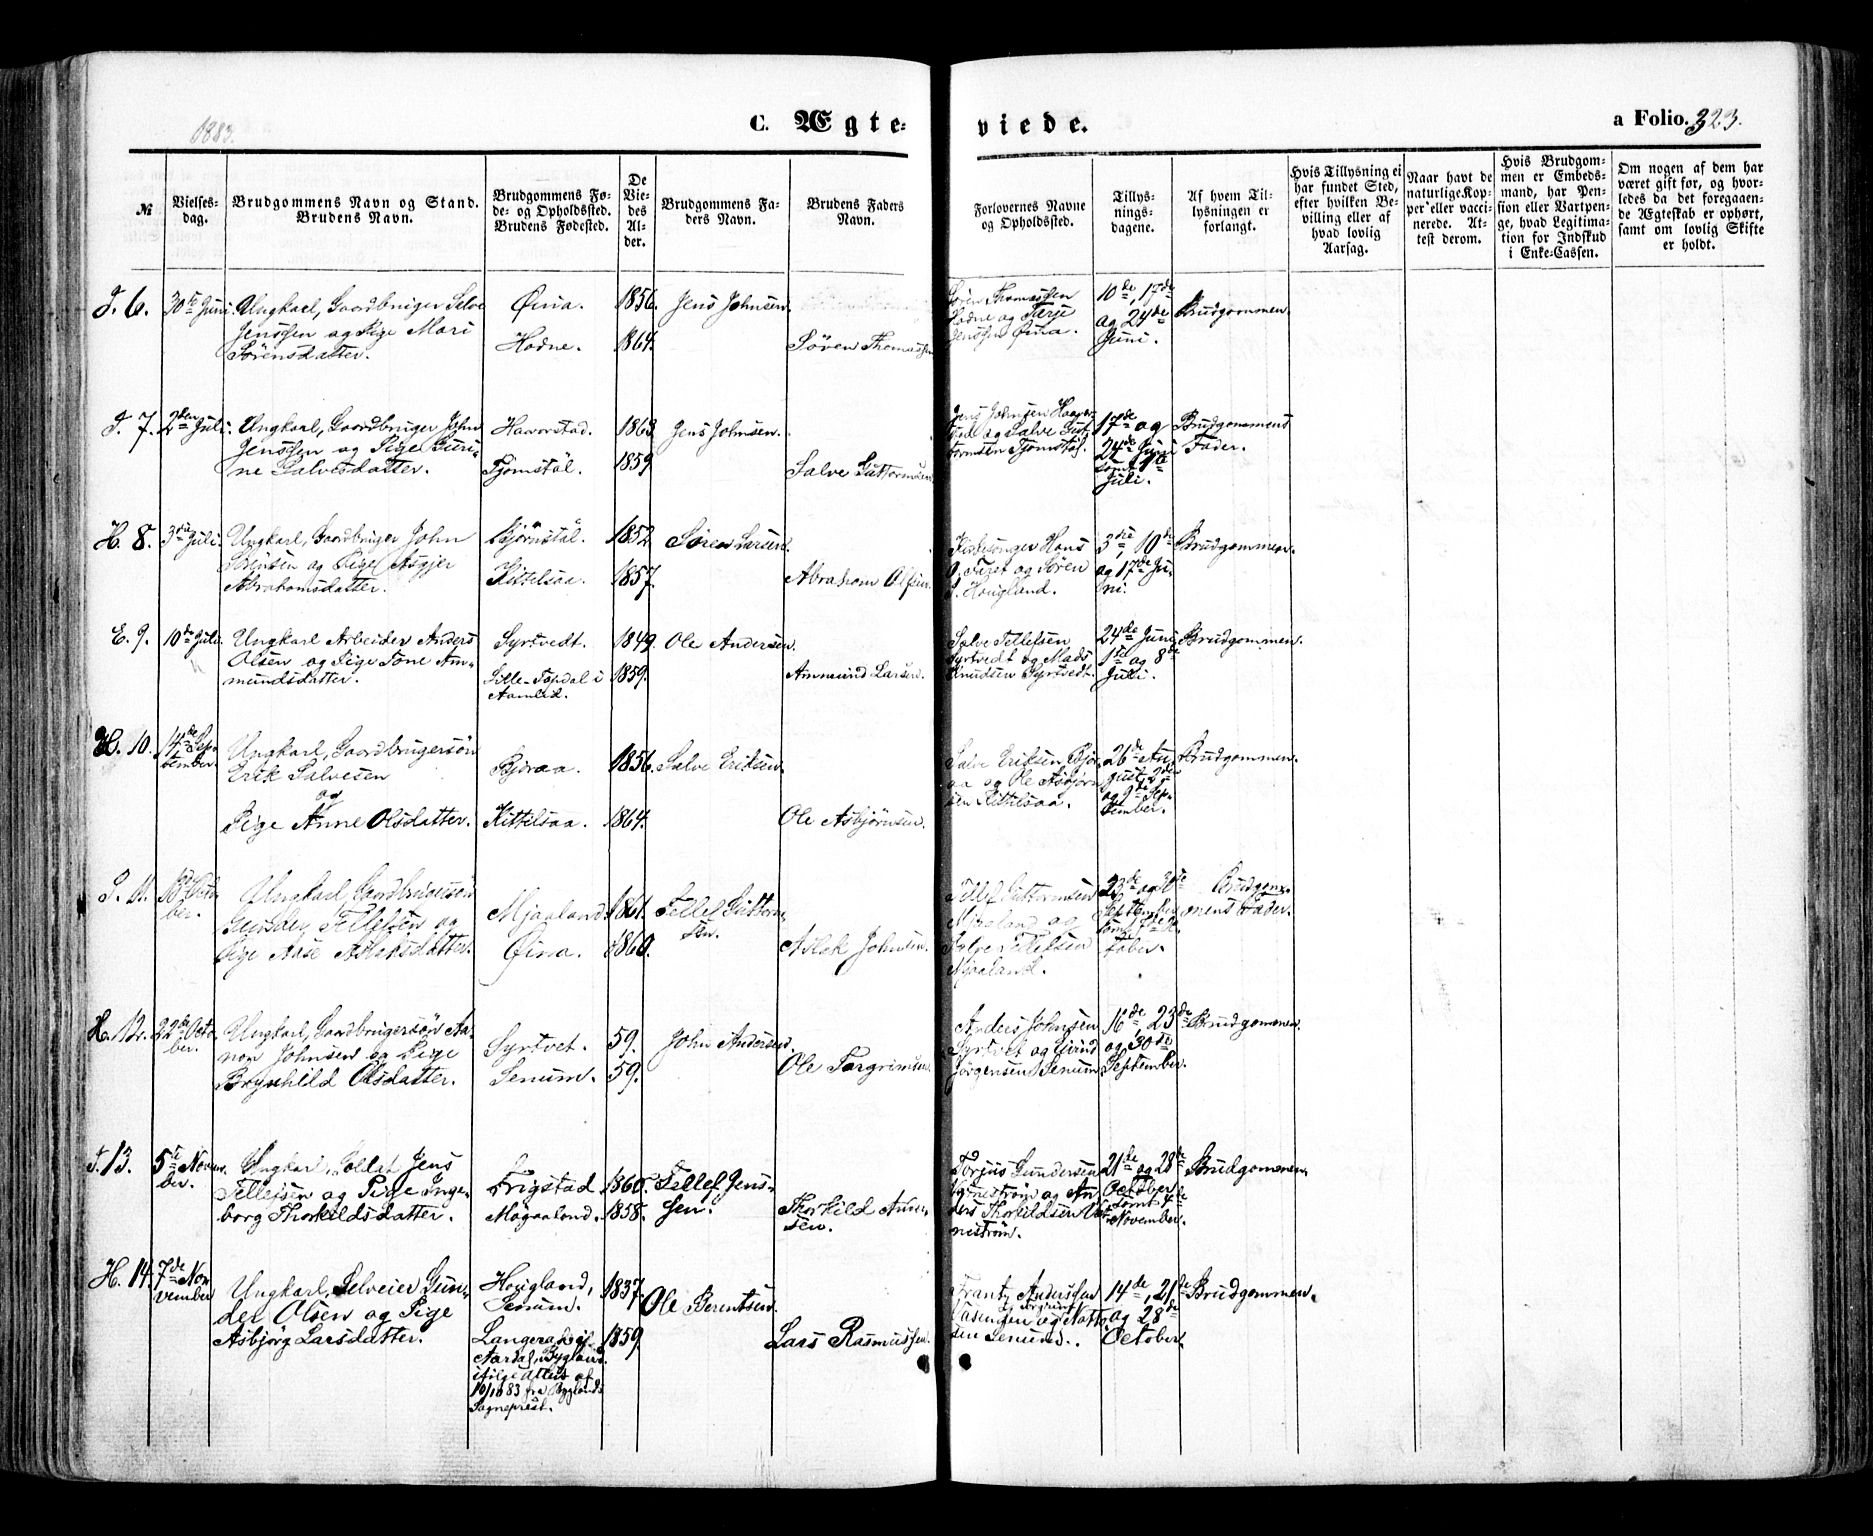 1883.
C. Ægte-
viede.
a Folio. 323.
№
Vielses-
dag.
Brudgommens Navn og Stand.
Brudens Navn.
Brudgommens Fø-
de- og Opholdssted.
Brudens Fødested.
De
Vie-
des
Al-
der.
Brudgommens Fa-
ders Navn.
Brudens Faders
Navn.
Forlovernes Navne
og Opholdssted.
Tillys-
nings-
dagene.
Af hvem Til-
lysningen er
forlangt.
Hvis Tillysning ei
har fundet Sted,
efter hvilken Be-
villing eller af
hvad lovlig
Aarsag.
Naar havt de
naturlige Kop-
per eller vacci-
nerede. At-
test derom.
Hvis Brudgom-
men er Embeds-
mand, har Pen-
sion eller Vartpen-
ge, hvad Legitima-
tion for Indskud
i Enke-Cassen.
Om nogen af dem har
været gift før, og hvor-
ledes da det foregaaen-
de Ægteskab er ophørt,
samt om lovlig Skifte
er holdt.
6.
30te Juni.
Ungkarl, Gaardbruger Selve
Jenssen og Pige Mari
Sörensdatter.
Øina.
Hodne.
1856.
1864.
Jens Johnsen.
Søren Thomassen
Sören Thomassen
Hodne og Terje
Jenssen Øina.
10de, 17de
og 24de
Juni.
Brudgommen.
7.
2den Juli.
Ungkarl, Gaardbruger John
Jenssen og Pige Guri-
ne Salvesdatter.
Haverstad.
Tjømstöl.
1863
1859
Jens Johnsen.
Salve Guttormsen
Jens Johnsen Haver-
stad og Salve Gut-
tormsen Tjomstöl.
17de og
24de Juni
samt 1te
Juli.
Brudgommens
Fader.
H. 8.
3die Juli.
Ungkarl, Gaardbruger John
Sörensen og Pige Asgjer
Abrahamsdatter.
Bjørnstöl.
Kittelsaa.
1852
1857.
Sören Larsen.
Abraham Olsen.
Kirkesanger Hans
O. Tveit og Sören
Hougland.
3die, 10de
og 17de Ju-
ni.
Brudgommen.
E. 9.
10de Juli.
Ungkarl Arbeider Anders
Olsen og Pige Tone Am-
mundsdatter.
Syrtvedt.
Lille-Topdal i
Aamlid.
1849
1859.
Ole Andersen.
Ammund Larsen.
Salve Tellefsen
Syrtvedt og Mads
Knudsen Syrtvedt.
24de Juni
1te og 8de
Juli.
Brudgommen.
H. 10.
14de Sep-
tember.
Ungkarl, Gaardbrugersön
Erik Salvesen
og
Pige Anne Olsdatter.
Bjoraa.
Kittelsaa.
1856.
1864.
Salve Eriksen.
Ole Asbjørnsen.
Salve Eriksen Bjor-
aa og Ole Asbjørn-
sen Kittelsaa.
26de Au-
gust, 2de
og 9de Sep-
tember.
Brudgommen.
11.
Octo-
ber.
Ungkarl, Gaardbrugersön
Tellefsen og
Pige Aase Aslaksdatter.
Mjaaland.
Øina.
1861.
1860.
Tellef Guttorm-
sen.
Aslak Johnsen.
Tellef Guttormsen
Mjaaland og
Tellefsen
Mjaaland.
23de og 30te
September
samt 7de Oc-
tober.
Brudgom-
mens Fader.
H. 12.
22de Octo-
ber.
Ungkarl, Gaardbrugersön Aa-
non Johnsen og Pige
Brynhild Olsdatter.
Syrtvet.
Senum.
59.
59.
John Andersen
Ole Torgrimsen.
Anders Johnsen
Syrtvet og Eivind
Jörgensen Senum.
16de, 23de
og 30te
September.
Brudgommen.
13.
5te Novem-
ber.
Ungkarl, Soldat Jens
Tellefsen og Pige Inge-
borg Thorkildsdatter.
Frigstad.
Mogaaland.
1860.
1858.
Tellef Jens-
sen.
Thorkild Ander-
sen.
Torjus Gundersen
og An-
ders Thorkildsen
21de og 28de
October
samt 4de
November.
Brudgommen.
H. 14.
7de No-
vember
Ungkarl, Selveier Gun-
der Olsen og Pige
Asbjørg Larsdatter.
Hougland,
Senum.
1837.
1859.
Aardal, Bygland.
ifølge attest af
10/10 83 fra Byglands
Sogneprest.
Ole Berentsen.
Lars Rasmussen.
Frantz Anderssen
sen Senum.
14de, 21de
og 28de
October.
Brudgommen.